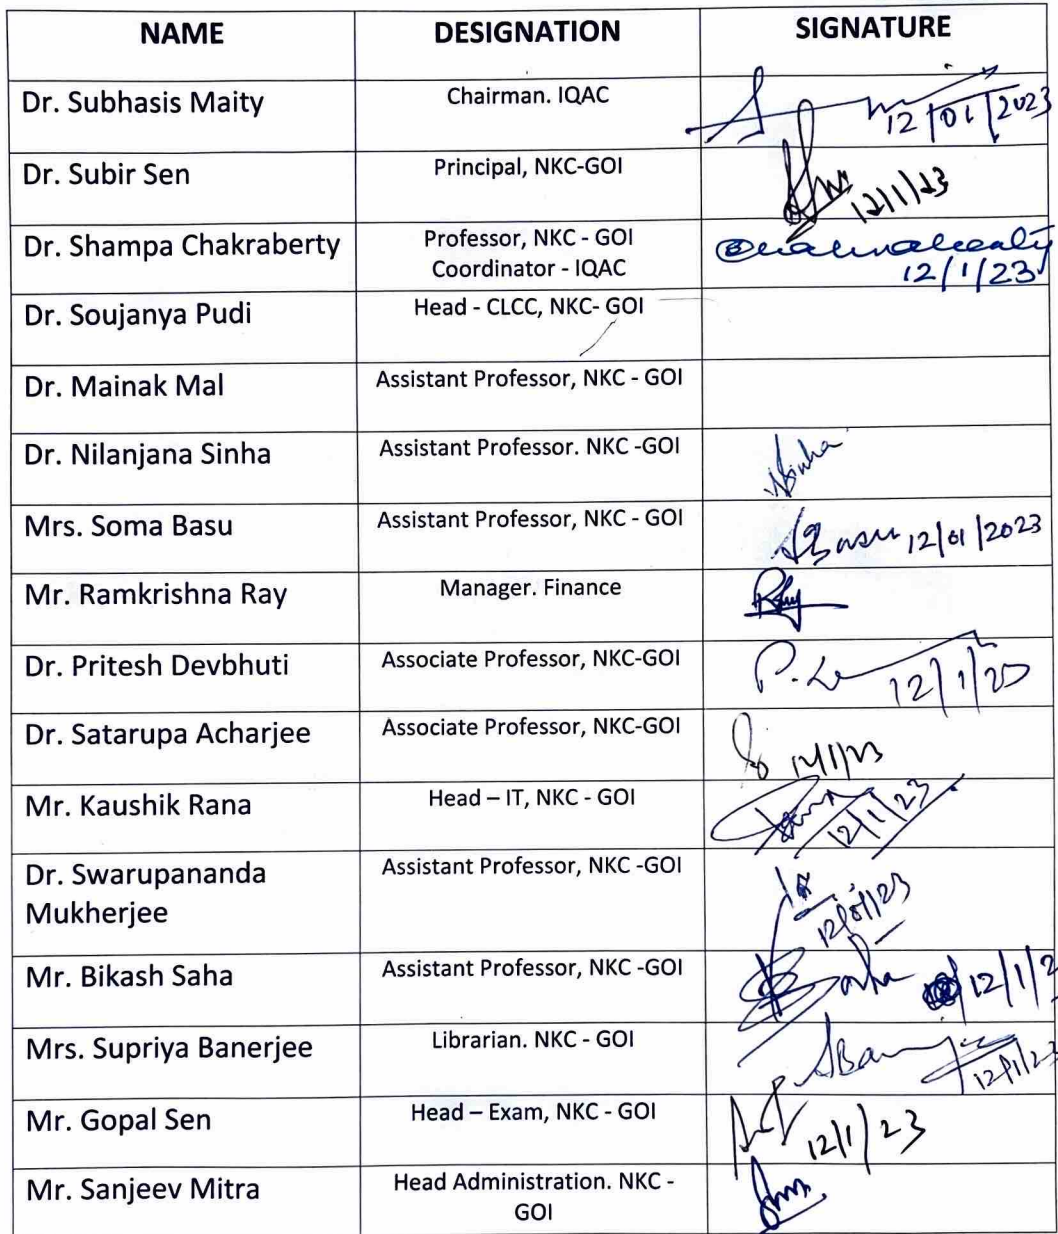 NAME DESIGNATION SIGNATURE
Dr. Subhasis Maity Chairman. IQAC 12/01/2023
Dr. Subir Sen Principal, NKC-GOI 12/1/23
Dr. Shampa Chakraberty Professor, NKC - GOI
Coordinator - IQAC 12/1/23
Dr. Soujanya Pudi Head - CLCC, NKC- GOI
Dr. Mainak Mal Assistant Professor, NKC - GOI
Dr. Nilanjana Sinha Assistant Professor. NKC -GOI NSinha
Mrs. Soma Basu Assistant Professor, NKC - GOI SBasu 12/01/2023
Mr. Ramkrishna Ray Manager. Finance
Dr. Pritesh Devbhuti Associate Professor, NKC-GOI
Dr. Satarupa Acharjee Associate Professor, NKC-GOI 12/1/23
Mr. Kaushik Rana Head – IT, NKC - GOI 12/1/23
Dr. Swarupananda
Mukherjee Assistant Professor, NKC -GOI 12/01/23
Mr. Bikash Saha Assistant Professor, NKC -GOI BSaha 12/1/2
Mrs. Supriya Banerjee Librarian. NKC - GOI
Mr. Gopal Sen Head – Exam, NKC - GOI 12/1/23
Mr. Sanjeev Mitra Head Administration. NKC -
GOI